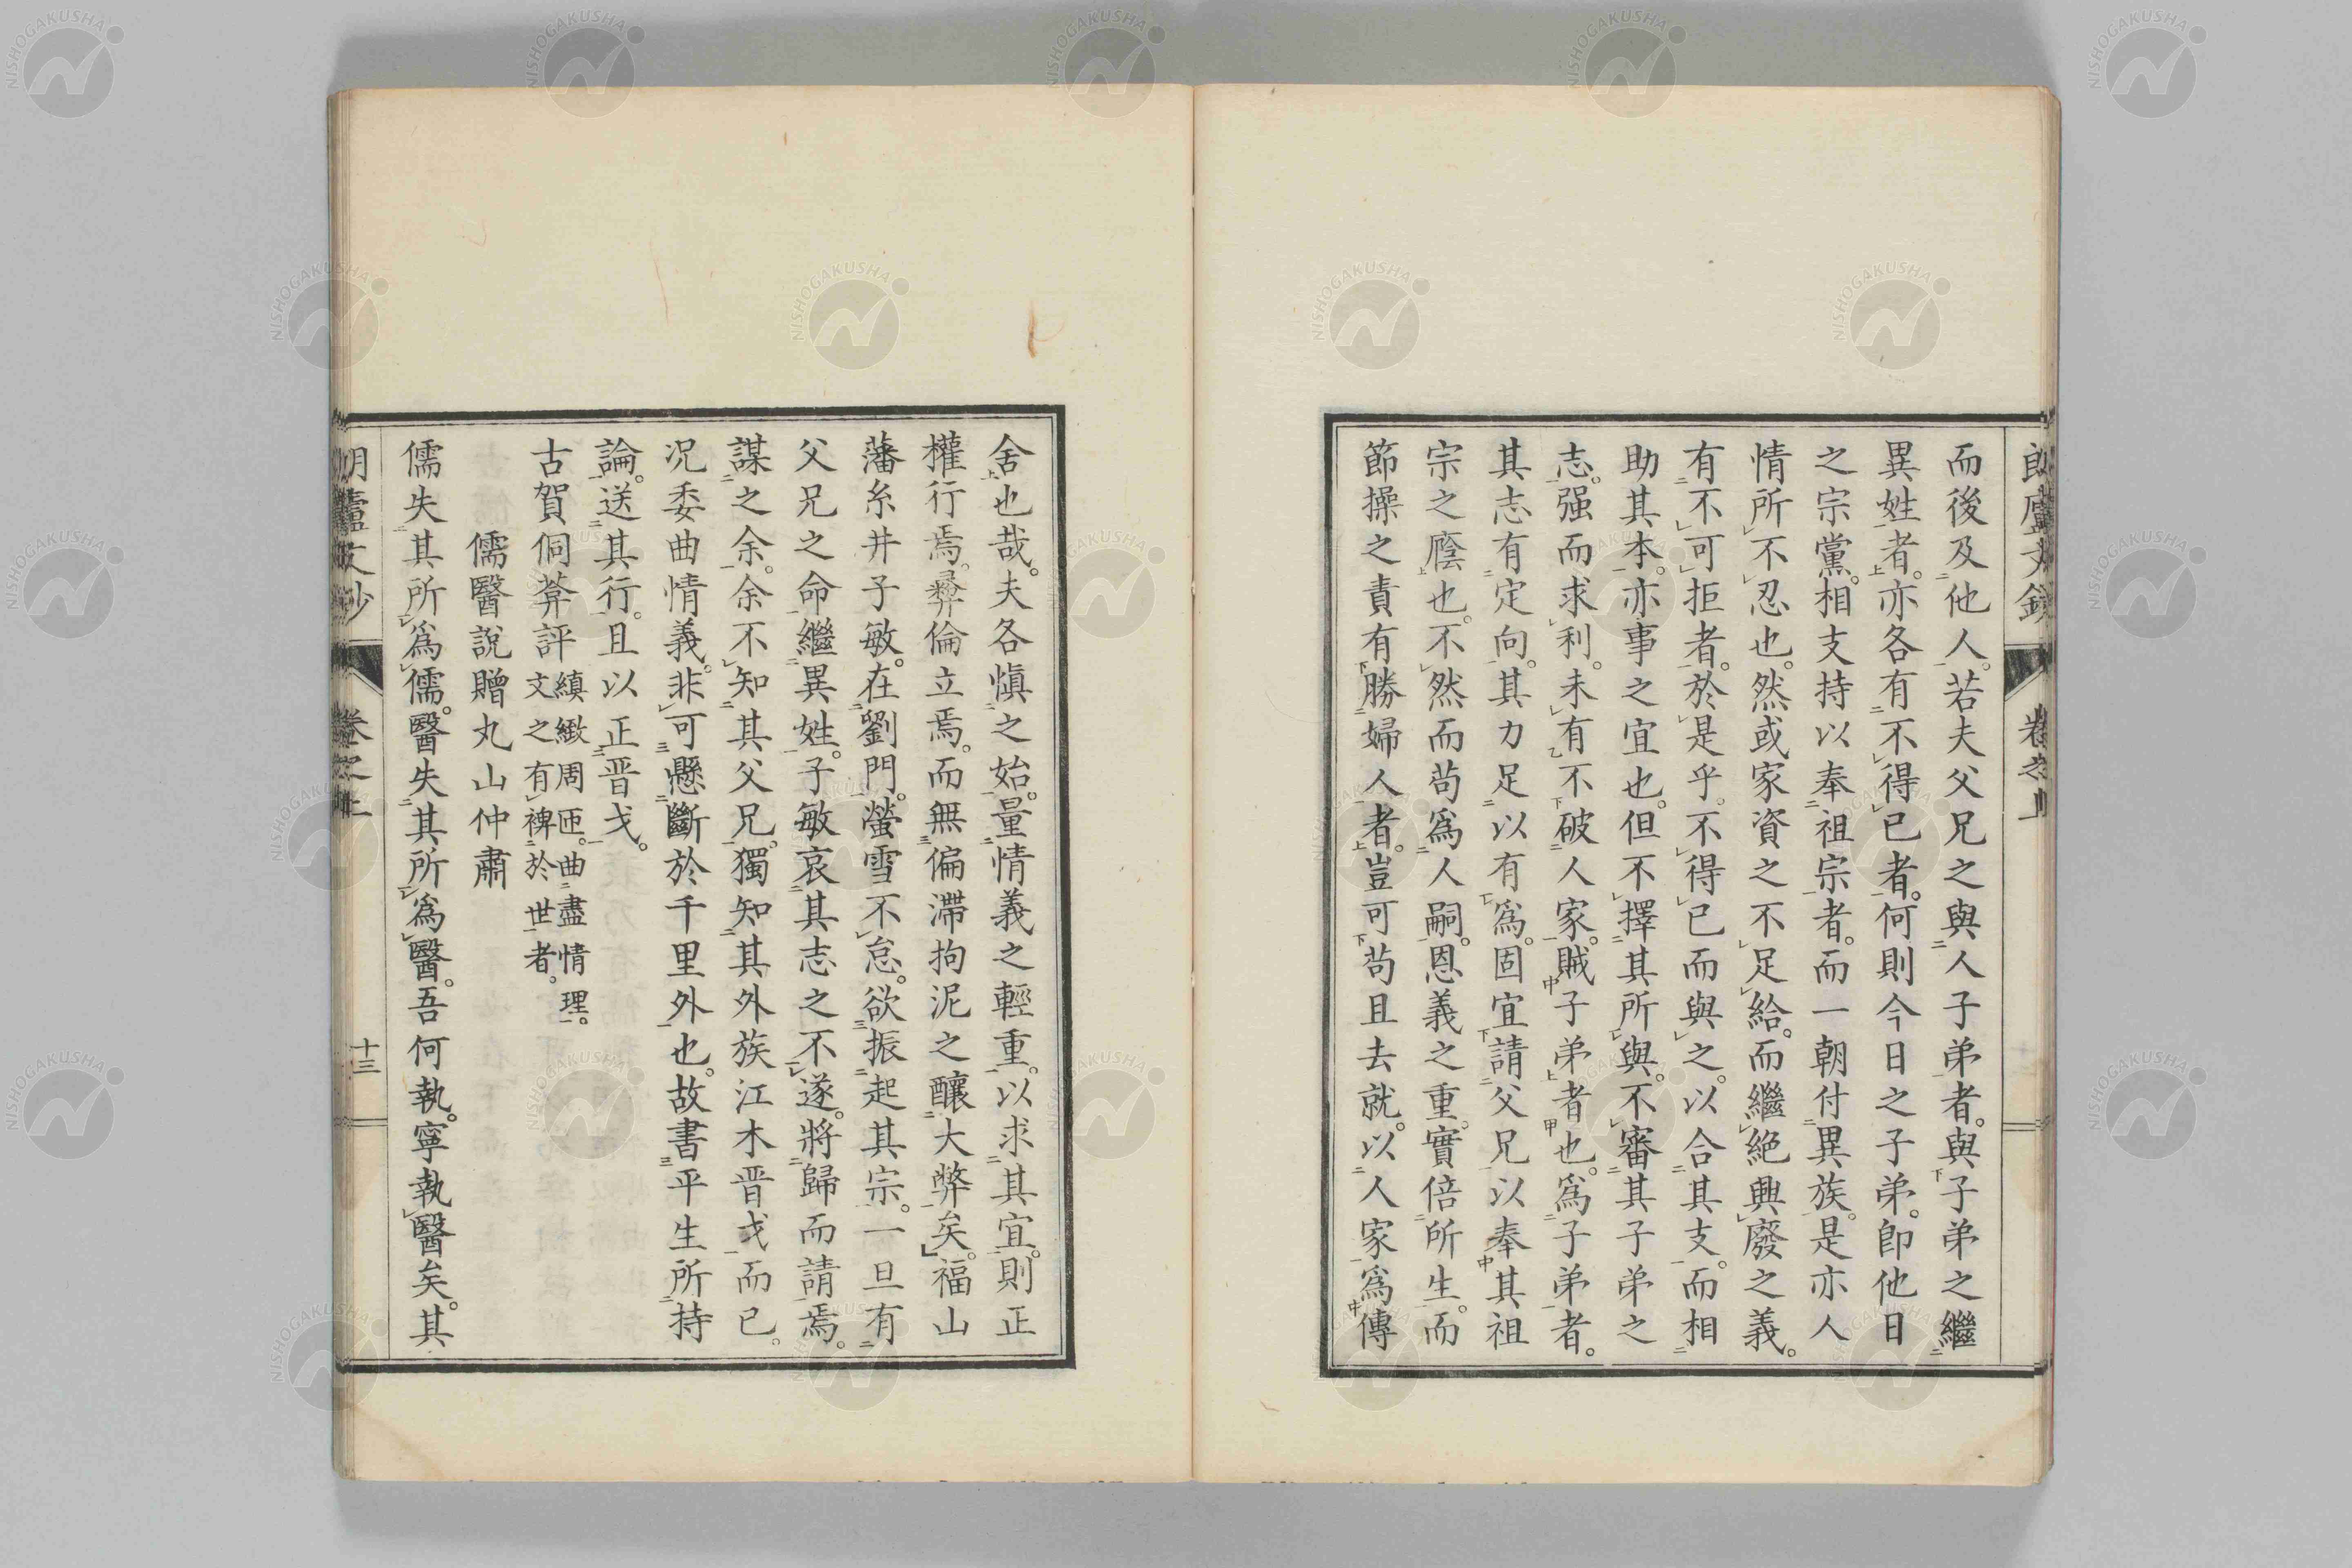 而後及他人。若夫父兄之與人子弟者。與子弟之繼
異姓者。亦各有不得已者。何則今日之子弟。卽他日
之宗黨。相支持以奉祖宗者。而一朝付異族。是亦人
情所不忍也。然或家資之不足給。而繼絶興廢之義。
有不可拒者。於是乎不得已而與之。以合其支。而相
助其本。亦事之宜也。但不擇其所與。不審其子弟之
志。强而求利。未有不破人家。賊子弟者也。爲子弟者。
其志有定向。其力足以有爲。固宜請父兄以奉其祖
宗之廕也。不然而苟爲人嗣。恩義之重。實倍所生。而
節操之責有勝婦人者。豈可苟且去就。以人家爲傳
舍也哉。夫各愼之始。量情義之輕重。以求其宜。則正
權行焉。彝倫立焉。而無偏滯拘泥之釀大弊矣。福山
藩糸井子敏。在劉門。螢雪不怠。欲振起其宗。一旦有
父兄之命。繼異姓。子敏哀其志之不遂。將歸而請焉。
謀之余。余不知其父兄。獨知其外族江木晋戈而已。
况委曲情義。非可懸斷於千里外也。故書平生所持
論。送其行。且以正晋戈。
古賀侗葊評 縝緻周匝。曲盡情理。
文之有裨於世者。
儒醫說贈丸山仲肅
儒失其所爲儒。醫失其所爲醫。吾何執。寧執醫矣。其
卷之上
十三
NISHOGAKUSHA